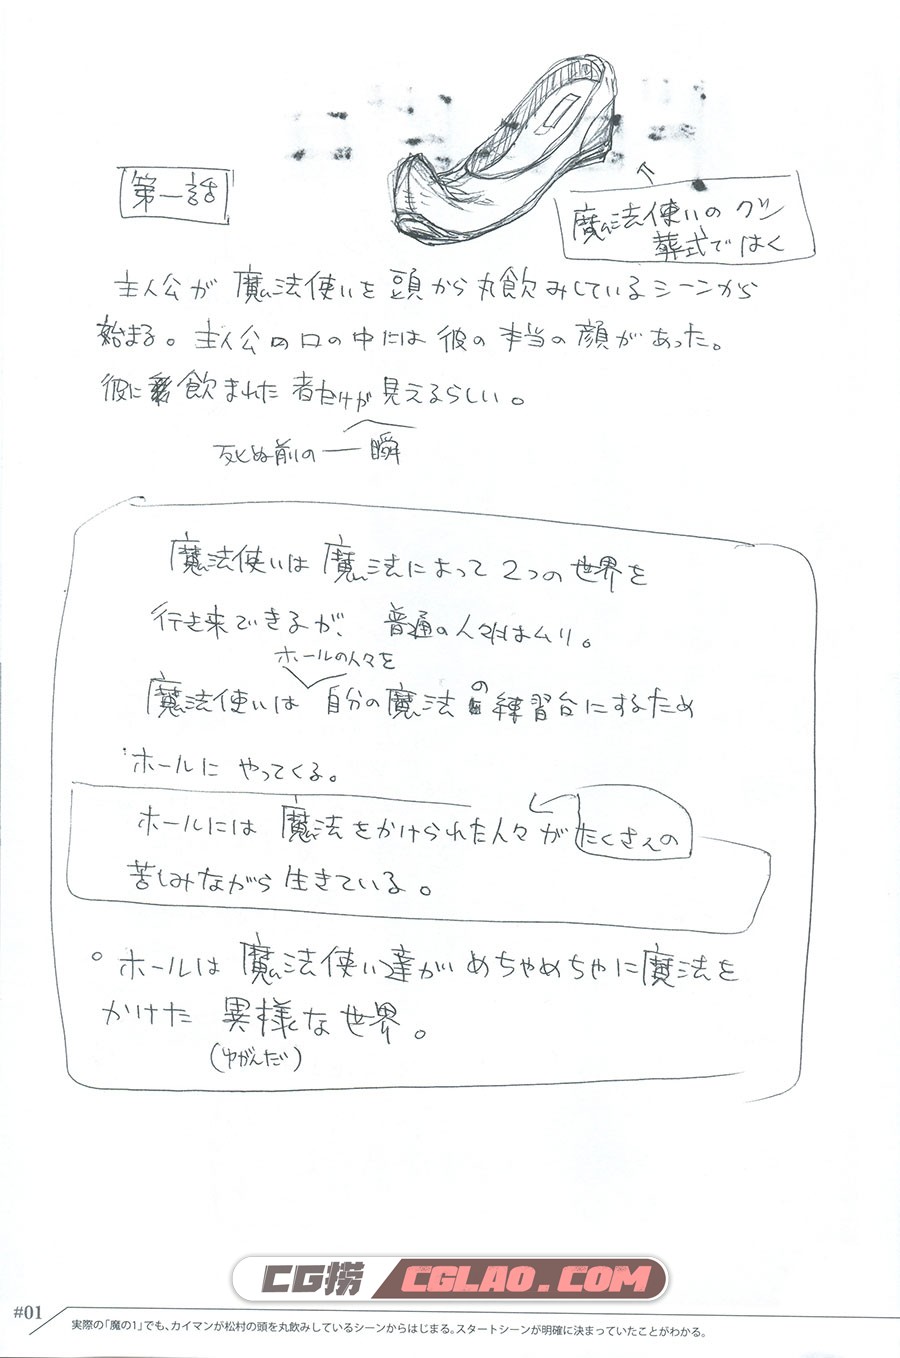 第一話
魔法使いのクツ
葬式ではく
主人公が 魔法使いを頭から丸飲みしているシーンから
始まる。主人公の口の中には彼の本当の顔があった。
彼に飲まれた者だけが見えるらしい。
死ぬ前の一瞬
魔法使いは魔法によって2つの世界を
行き来できるが、普通の人々はムリ。
ホールの人々を
魔法使いは自分の魔法の練習台にするため
ホールにやってくる。
ホールには魔法をかけられた人々がたくさんの
苦しみながら生きている。
○ホールは魔法使い達がめちゃめちゃに魔法を
かけた異様な世界。
(ゆがんだ)
CG捞 CGLAO.COM
#01
実際の「魔の1」でも、カイマンが松村の頭を丸飲みしているシーンからはじまる。スタートシーンが明確に決まっていたことがわかる。